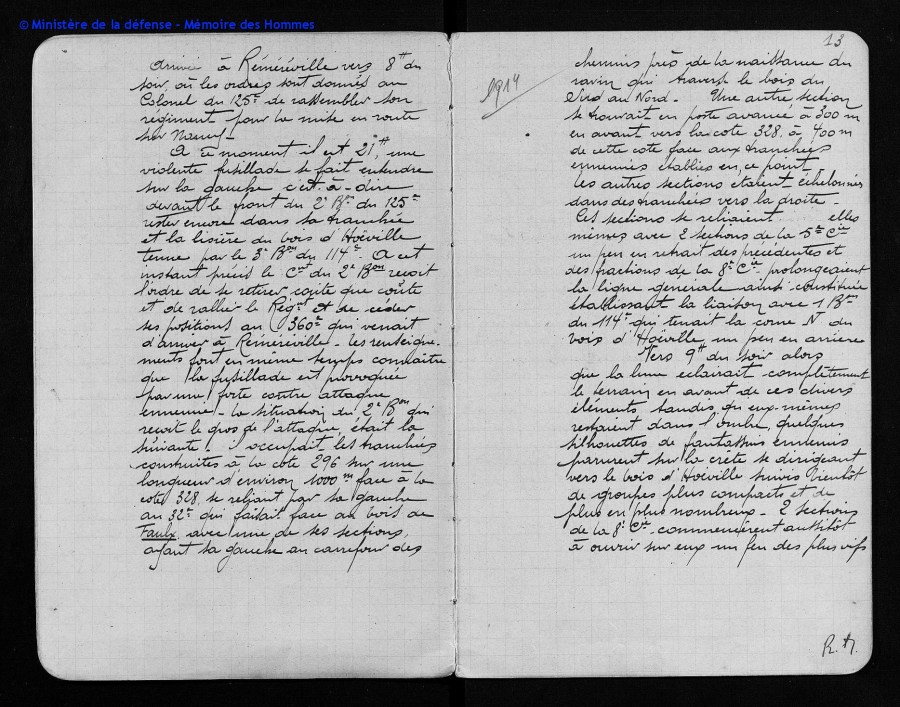 © Ministère de la défense - Mémoire des Hommes
arrivée à Réméréville vers 8H du
soir, où les ordres sont donnés au
Colonel du 125e de rassembler son
régiment pour la mise en route
sur Nancy -
A ce moment il est 21H, une
violente fusillade se fait entendre
sur la gauche c'est-à-dire
devant le front du 2e Bon du 125e
resté encore dans sa tranchée
et la lisière du bois d'Hoëville
tenue par le 3e Bon du 114e. A cet
instant précis le Ct du 2e Bon reçoit
l'ordre de se retirer coûte que coûte
et de rallier le Régnt et de céder
ses positions au 360e qui venait
d'arriver à Réméréville - Les renseigne-
ments font en même temps connaître
que la fusillade est provoquée
par une forte contre attaque
ennemie - La situation du 2e Bon qui
reçoit le gros de l'attaque, était la
suivante : il occupait les tranchées
construites à la cote 296 sur une
longueur d'environ 1000m face à la
cote 328, se reliant par sa gauche
au 32e qui faisait face au bois de
Faulx, avec une de ses sections,
ayant sa gauche au carrefour des
13
1914
chemins près de la naissance du
ravin qui traverse le bois du
Sud au Nord - Une autre section
se trouvait en poste avancé à 300m
en avant vers la cote 328, à 400m
de cette cote face aux tranchées
ennemies établies en ce point -
Les autres sections étaient échelonnées
dans des tranchées vers la droite -
Ces sections se reliaient elles
mêmes avec 2 sections de la 5e Cie
un peu en retrait des précédentes et
des fractions de la 8e Cie prolongeaient
la ligne générale ainsi constituée
établissant la liaison avec 1 Bon
du 114e qui tenait la corne N du
bois d'Hoëville un peu en arrière
Vers 9H du soir alors
que la lune éclairait complètement
le terrain en avant de ces divers
éléments tandis qu'eux-mêmes
restaient dans l'ombre, quelques
silhouettes de fantassins ennemis
parurent sur la crête se dirigeant
vers le bois d'Hoëville suivis bientôt
de groupes plus compacts et de
plus en plus nombreux - 2 sections
de la 8e Cie commencèrent aussitôt
à ouvrir sur eux un feu des plus vifs